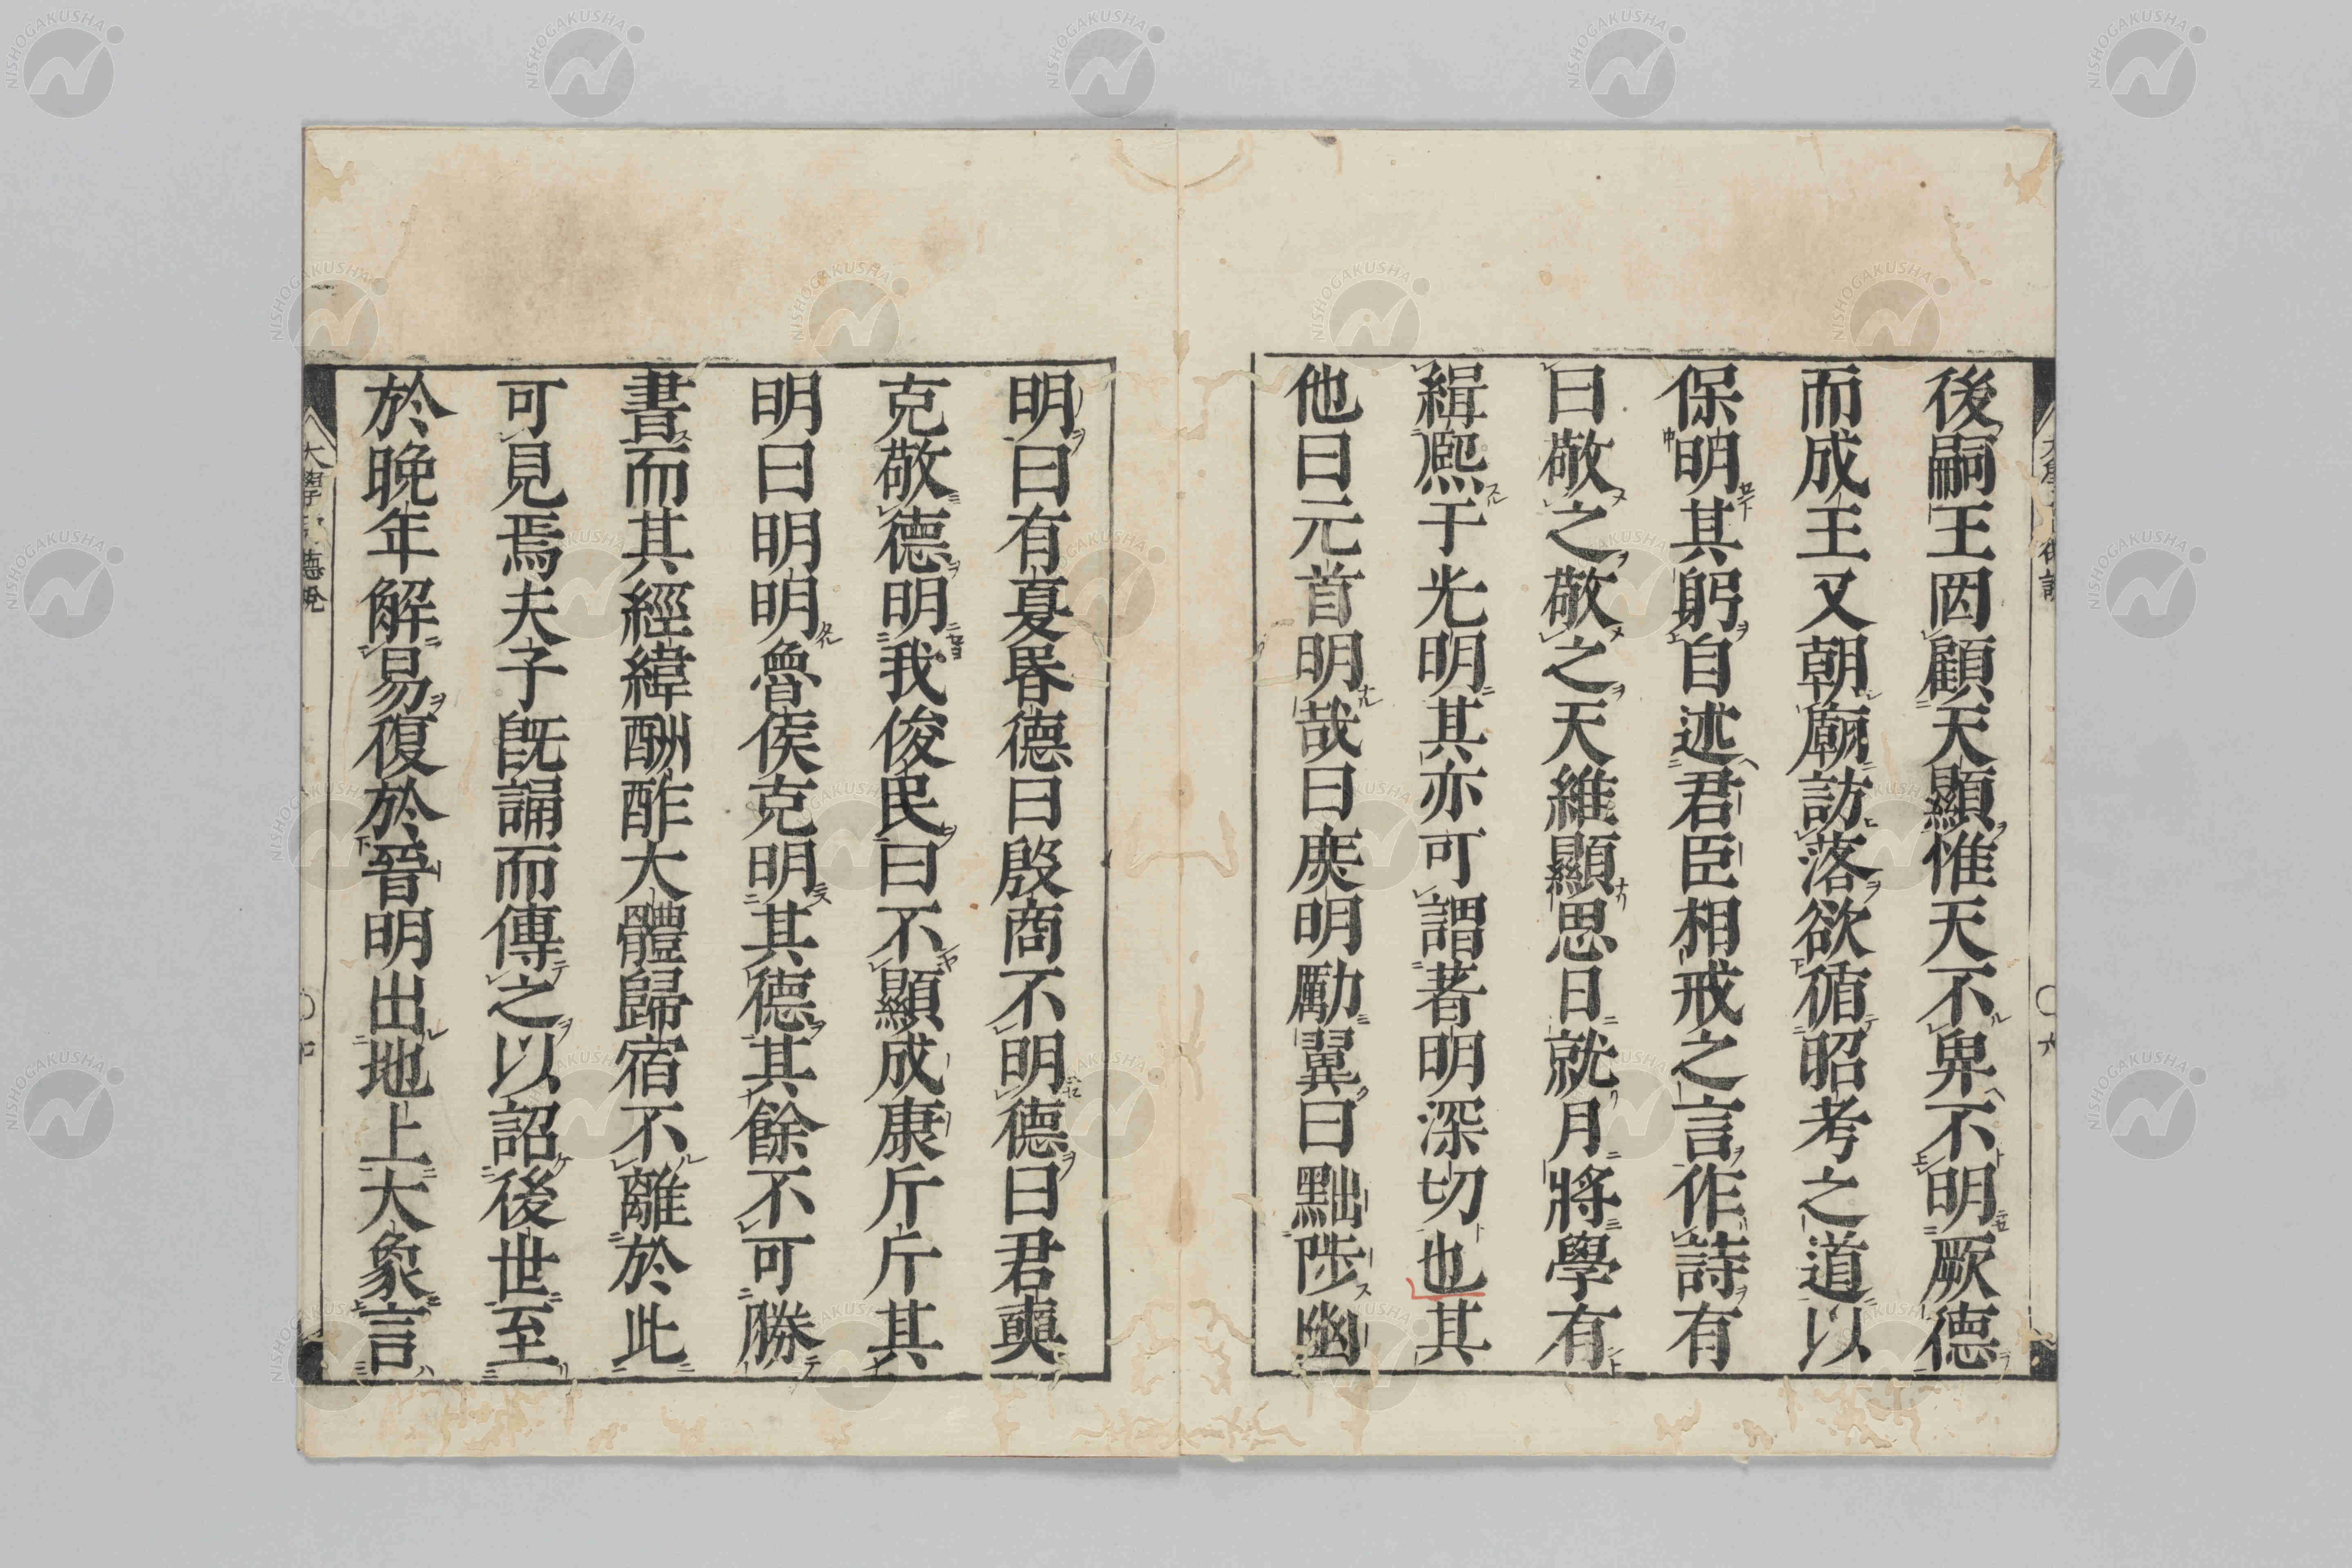 後嗣王罔顧天顯惟天不卑不明厥德
而成王又朝廟訪落欲循昭考之道以
保明其躬自述君臣相戒之言作詩有
曰敬之敬之天維顯思日就月將學有
緝熈于光明其亦可謂著明深切也其
他曰元首明哉曰庶明勵翼曰黜陟幽
明曰有夏昬德曰殷商不明德曰君奭
克敬德明我俊民曰不顯成康斤斤其
明曰明明魯侯克明其德其餘不可勝
書而其經緯酬酢大體歸宿不離於此
可見焉夫子旣誦而傳之以詔後世至
於晚年解易復於晉明出地上大象言
NISHOGAKUSHA